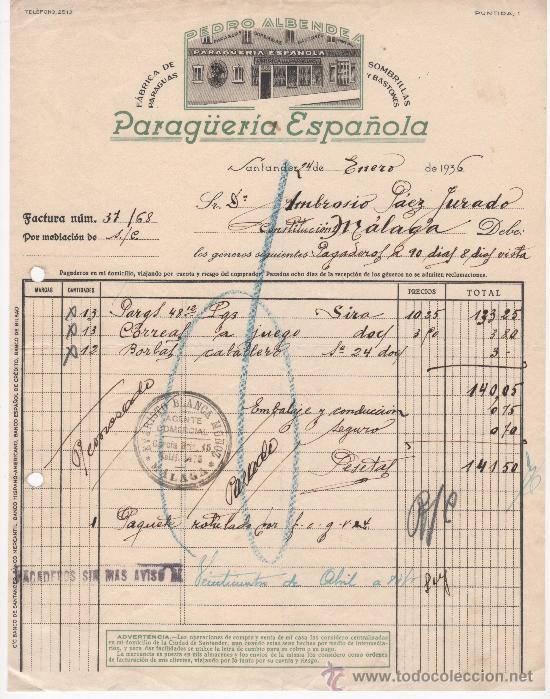 TELÉFONO, 2513
PUNTIDA, 1
PEDRO ALBENDEA
PARAGÜERIA ESPAÑOLA
FÁBRICA DE PARAGUAS
SOMBRILLAS Y BASTONES
Paragüería Española
Santander, 24 de Enero de 1936
Sr. Dn Ambrosio Páez Jurado
Factura núm. 37/68
Constitución Málaga Debe:
Por mediación de S/C
los géneros siguientes: Pagaderos a 90 días 8 días vista
Pagaderos en mi domicilio, viajando por cuenta y riesgo del comprador. Pasados ocho días de la recepción de los géneros no se admiten reclamaciones.
MARCAS CANTIDADES PRECIOS TOTAL
13 Pargs 48 10,25 133,25
13 juego 3,90 3,80
12 caballero 24 3-
140,05
Embalaje y conducción 0,75
seguro 0,70
Pesetas 141,50
AGENTE COMERCIAL
MÁLAGA
1 Paquete rotulado por
PAGADEROS SIN MAS AVISO AL
de Abril
Cte. BANCO DE SANTANDER, BANCO MERCANTIL, BANCO HISPANO-AMERICANO, BANCO ESPAÑOL DE CRÉDITO, BANCO DE BILBAO
ADVERTENCIA.—Las operaciones de compra y venta de mi casa las considero centralizadas
en mi domicilio de la Ciudad de Santander, aun cuando estas sean hechas por medio de intermedia-
rios, y para dar facilidades se utilice la letra de cambio para su cobro o su pago.
La mercancía se pesará en mis almacenes y los envíos de la misma los considero como órdenes
de facturación de mis clientes, viajando por lo tanto por su cuenta y riesgo.
todocoleccion.net